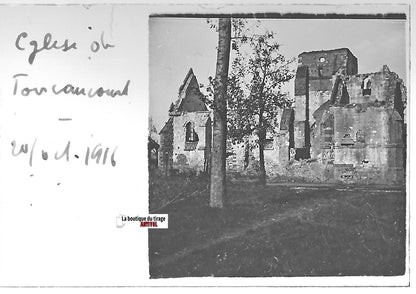 Eglise de
Foucaucourt
—
20/oct. 1916
La boutique du tirage
ARGENTIQUE